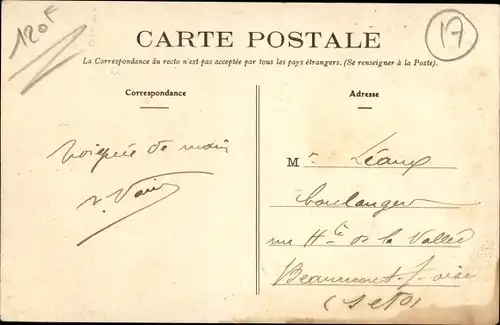 120F
17
CARTE POSTALE
La Correspondance du recto n'est pas acceptée par tous les pays étrangers. (Se renseigner à la Poste).
Correspondance
Poignée de main
Adresse
Mr
boulanger
rue Hte de la Vallée
Beaumont-s-oise
(S et O)